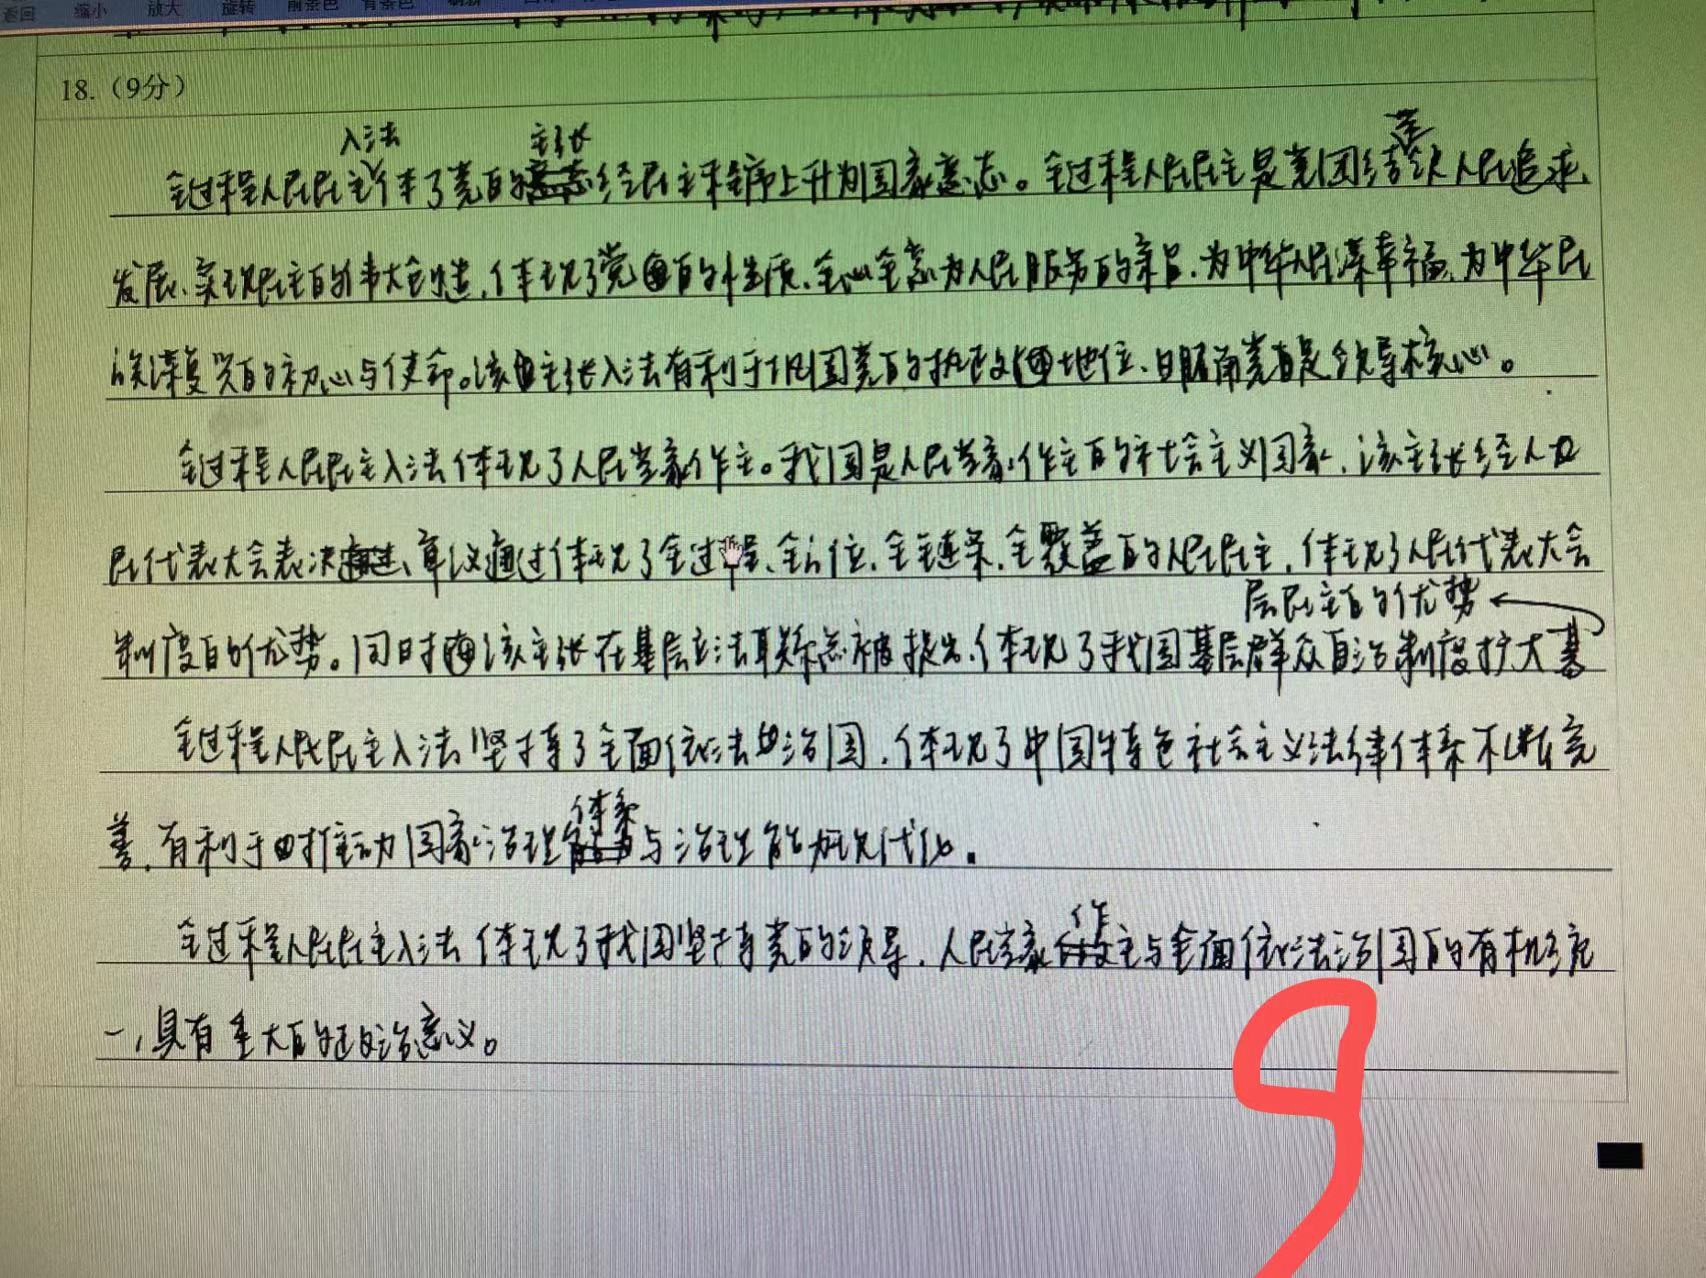 返回 缩小 放大 旋转 前景色 背景色 刷新
18.（9分）
入法 主张
全过程人民民主体了党的经民主程序上升为国家意志。全过程人民民主是党团结带领人民追求、
发展、实现民主的伟大创造，体现了党的性质、全心全意为人民服务的宗旨、为中华人民谋幸福、为中华民
族谋复兴的初心与使命。该主张入法有利于巩固党的执政地位、明确党是领导核心。
全过程人民民主入法体现了人民当家作主。我国是人民当家作主的社会主义国家，该主张经人
民代表大会表决、审议通过体现了全过程、全方位、全链条、全覆盖的人民民主，体现了人民代表大会
层民主的优势
制度的优势。同时该主张在基层立法联系点被提出，体现了我国基层群众自治制度扩大基
全过程人民民主入法坚持了全面依法治国，体现了中国特色社会主义法律体系不断完
体系
善，有利于推动国家治理与治理能力现代化。
作
全过程人民民主入法体现了我国坚持党的领导、人民当家主与全面依法治国的有机统
一，具有重大的政治意义。
9